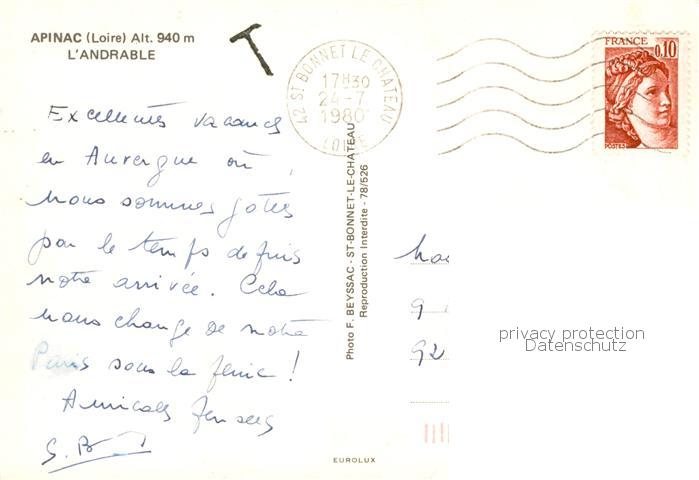 APINAC (Loire) Alt. 940 m
L'ANDRABLE
T
42 ST BONNET LE CHATEAU
17H30
24-7
1980
LOIRE
FRANCE
0,10
POSTES
Excellentes vacances
en Auvergne où
nous sommes gâtés
par le temps depuis
notre arrivée. Cela
nous change de notre
Paris sous la pluie !
Amicales pensées
G. B
Photo F. BEYSSAC - ST-BONNET-LE-CHATEAU
Reproduction Interdite - 78/526
9
92
privacy protection
Datenschutz
EUROLUX